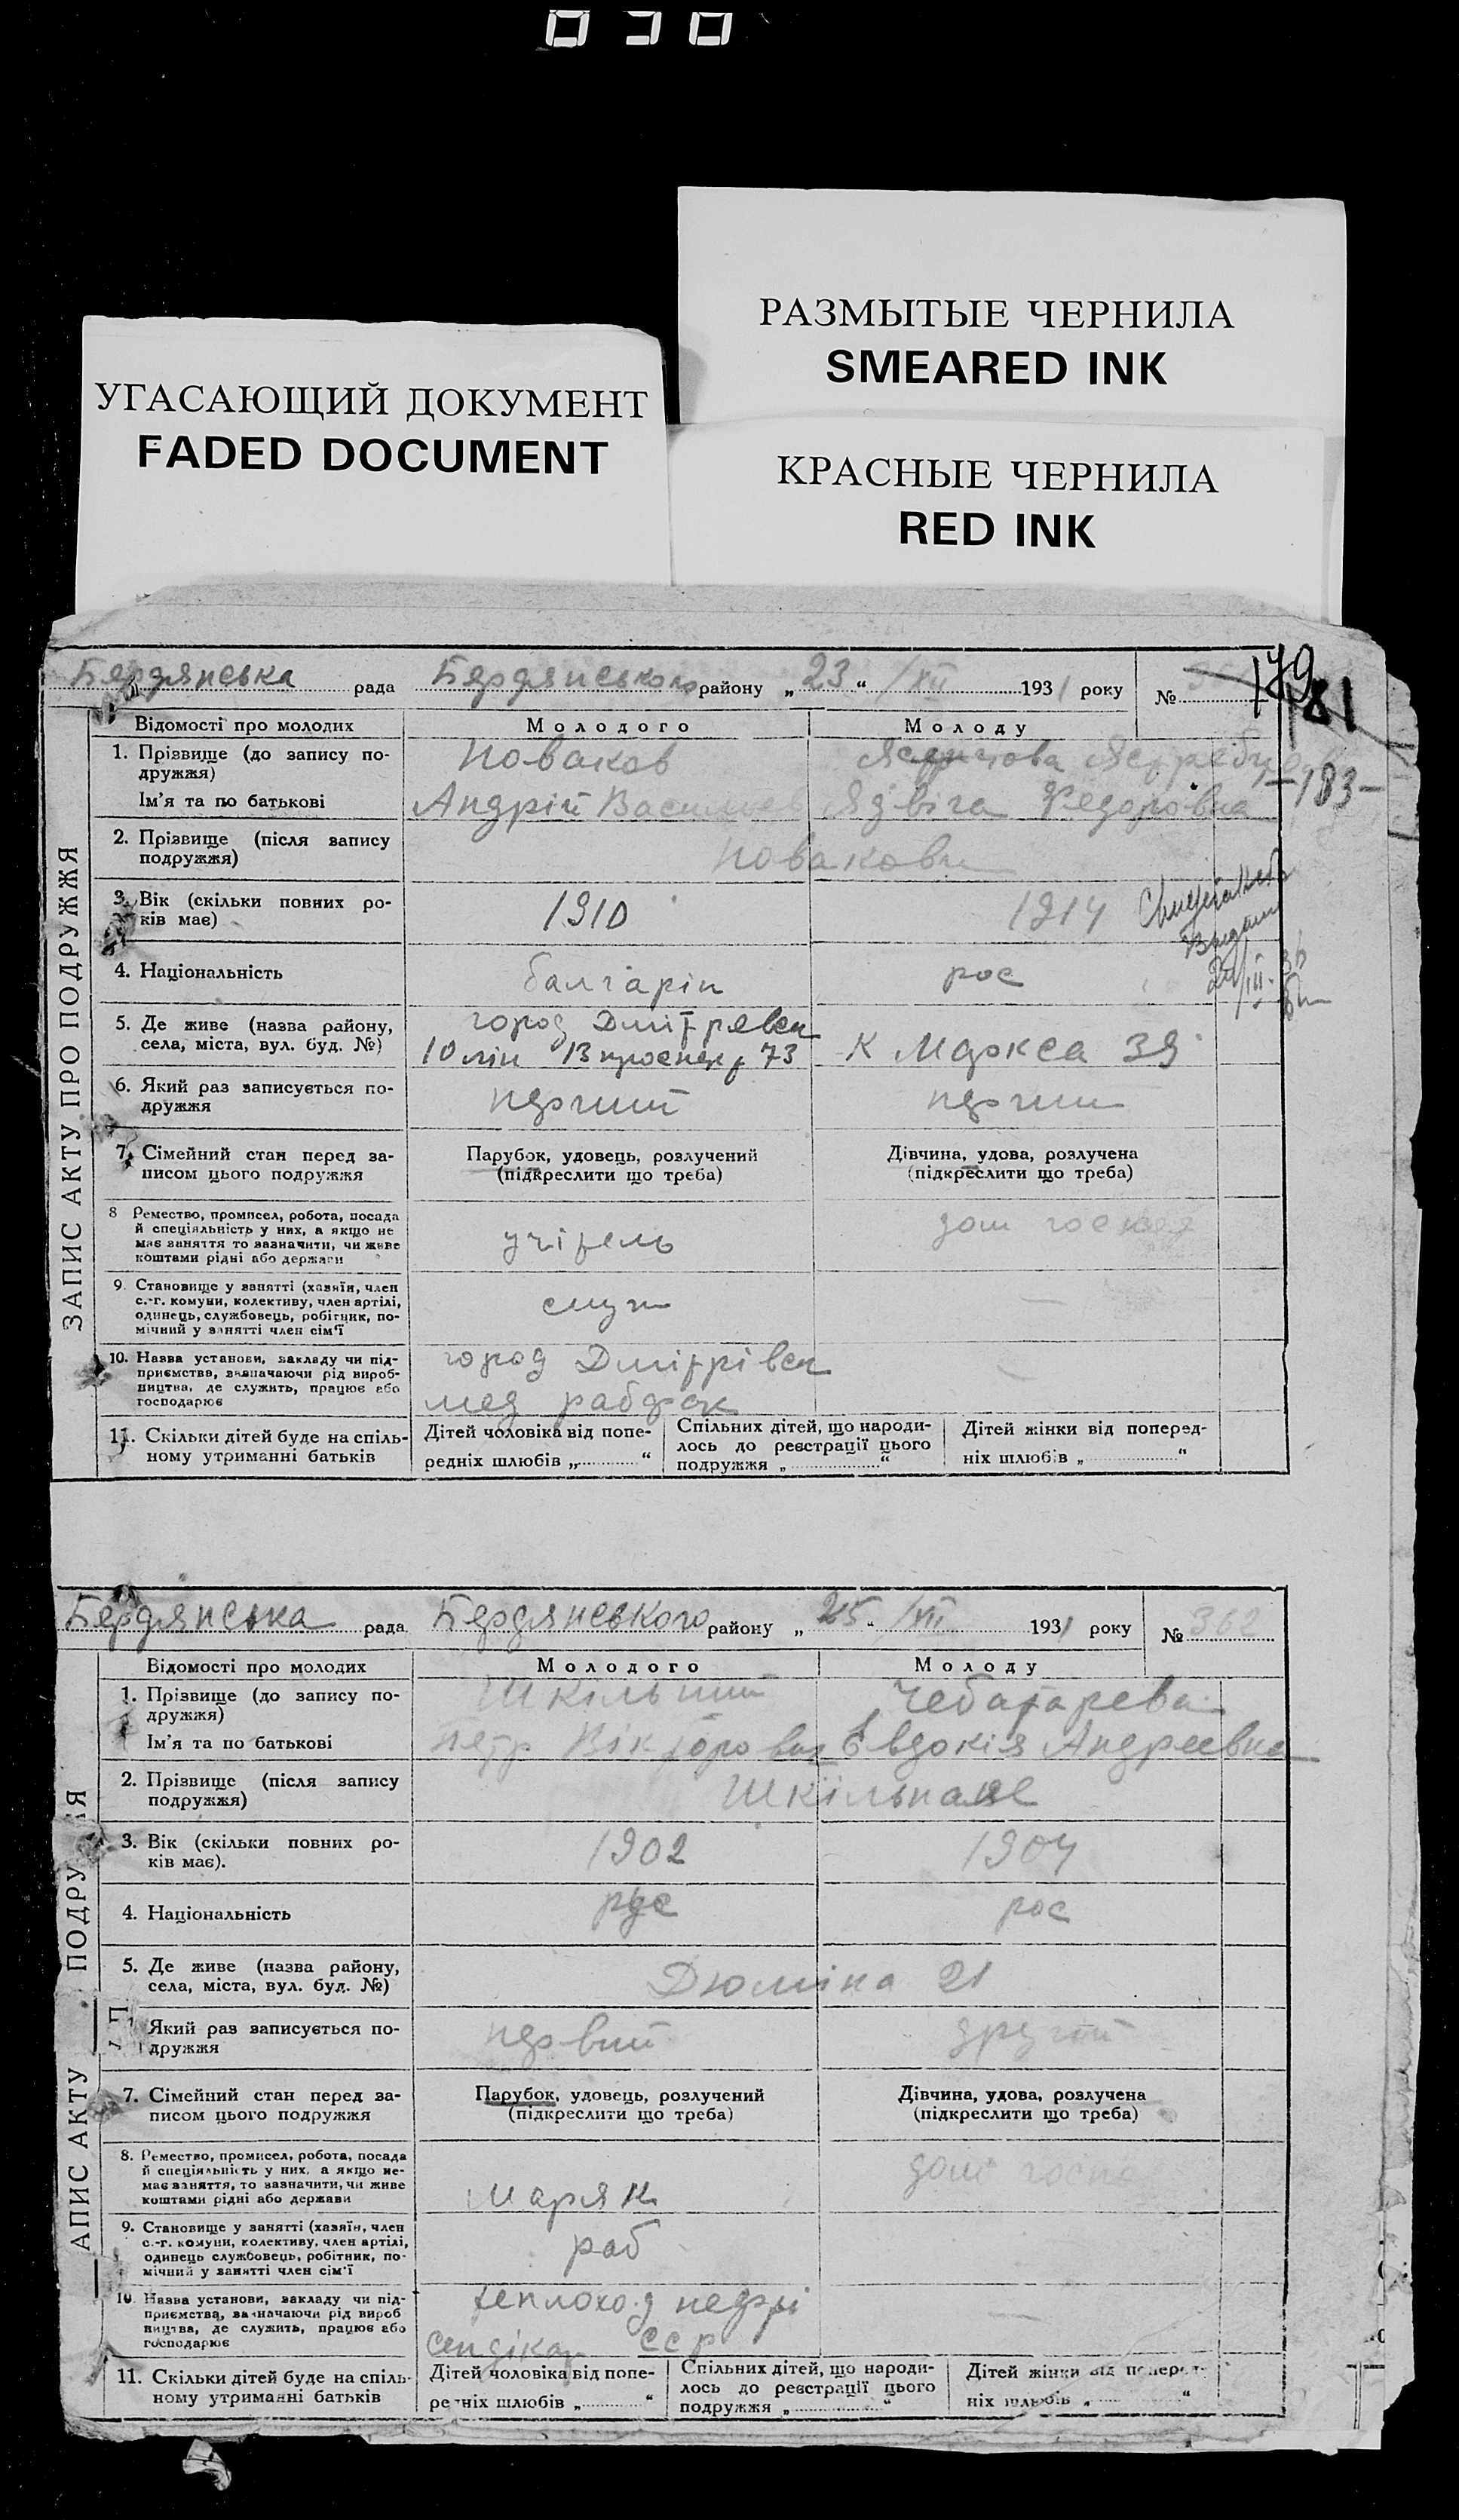 030
РАЗМЫТЫЕ ЧЕРНИЛА
SMEARED INK
УГАСАЮЩИЙ ДОКУМЕНТ
FADED DOCUMENT
КРАСНЫЕ ЧЕРНИЛА
RED INK
ЗАПИС АКТУ ПРО ПОДРУЖЖЯ
Бердянська рада Бердянського району „23“ /XII 1931 року №
179
181
-183-
Відомості про молодих Молодого Молоду
1. Прізвище (до запису по-
дружжя) Новаков
Ім'я та по батькові Андрій Ядвіга Федоровна
2. Прізвище (після запису
подружжя) Новакови
3. Вік (скільки повних ро-
ків має) 1910 1914
4. Національність балгарін рос
5. Де живе (назва району, город Дмітрівск
села, міста, вул. буд. №) 10 лін 13 проспект 73 К Маркса 39
6. Який раз записується по-
дружжя перший перший
7. Сімейний стан перед за- Парубок, удовець, розлучений Дівчина, удова, розлучена
писом цього подружжя (підкреслити що треба) (підкреслити що треба)
8 Ремество, промисел, робота, посада
й спеціяльність у них, а якщо не
має заняття то зазначити, чи живе
коштами рідні або держави учітель дом
9. Становище у занятті (хазяїн, член
с.-г. комуни, колективу, член артілі,
одинець, службовець, робітник, по-
мічний у занятті член сім'ї служ —
10. Назва установи, закладу чи під- город Дмітрівск
приємства, зазначаючи рід вироб-
ництва, де служить, працює або
господарює мед рабфак —
11. Скільки дітей буде на спіль- Дітей чоловіка від попе- Спільних дітей, що народи- Дітей жінки від поперед-
ному утриманні батьків редніх шлюбів „ “ лось до реєстрації цього ніх шлюбів „ “
подружжя „ “
АПИС АКТУ П ПОДРУ ЖЯ
Бердянська рада Бердянського району „25“ /XII 1931 року № 362
Відомості про молодих Молодого Молоду
1. Прізвище (до запису по-
дружжя) Шкільний Чебатарева
Ім'я та по батькові Петр Вікторович Євдокія Андреевна
2. Прізвище (після запису
подружжя)
3. Вік (скільки повних ро-
ків має). 1902 1904
4. Національність рус рос
5. Де живе (назва району,
села, міста, вул. буд. №) Дюміна 21
Який раз записується по-
дружжя первий другий
7. Сімейний стан перед за- Парубок, удовець, розлучений Дівчина, удова, розлучена
писом цього подружжя (підкреслити що треба) (підкреслити що треба)
8. Ремество, промисел, робота, посада
й спеціяльність у них, а якщо не-
має заняття, то зазначити, чи живе
коштами рідні або держави маряк дом
9. Становище у занятті (хазяїн, член
с.-г. комуни, колективу, член артілі,
одинець службовець, робітник, по-
мічний у занятті член сім'ї раб
10. Назва установи, закладу чи під- теплоход
приємства, зазначаючи рід вироб
ництва, де служить, працює або
господарює сендікат ССР —
11. Скільки дітей буде на спіль- Дітей чоловіка від попе- Спільних дітей, що народи- Дітей жінки від поперед-
ному утриманні батьків редніх шлюбів „ “ лось до реєстрації цього ніх шлюбів „ “
подружжя „ “